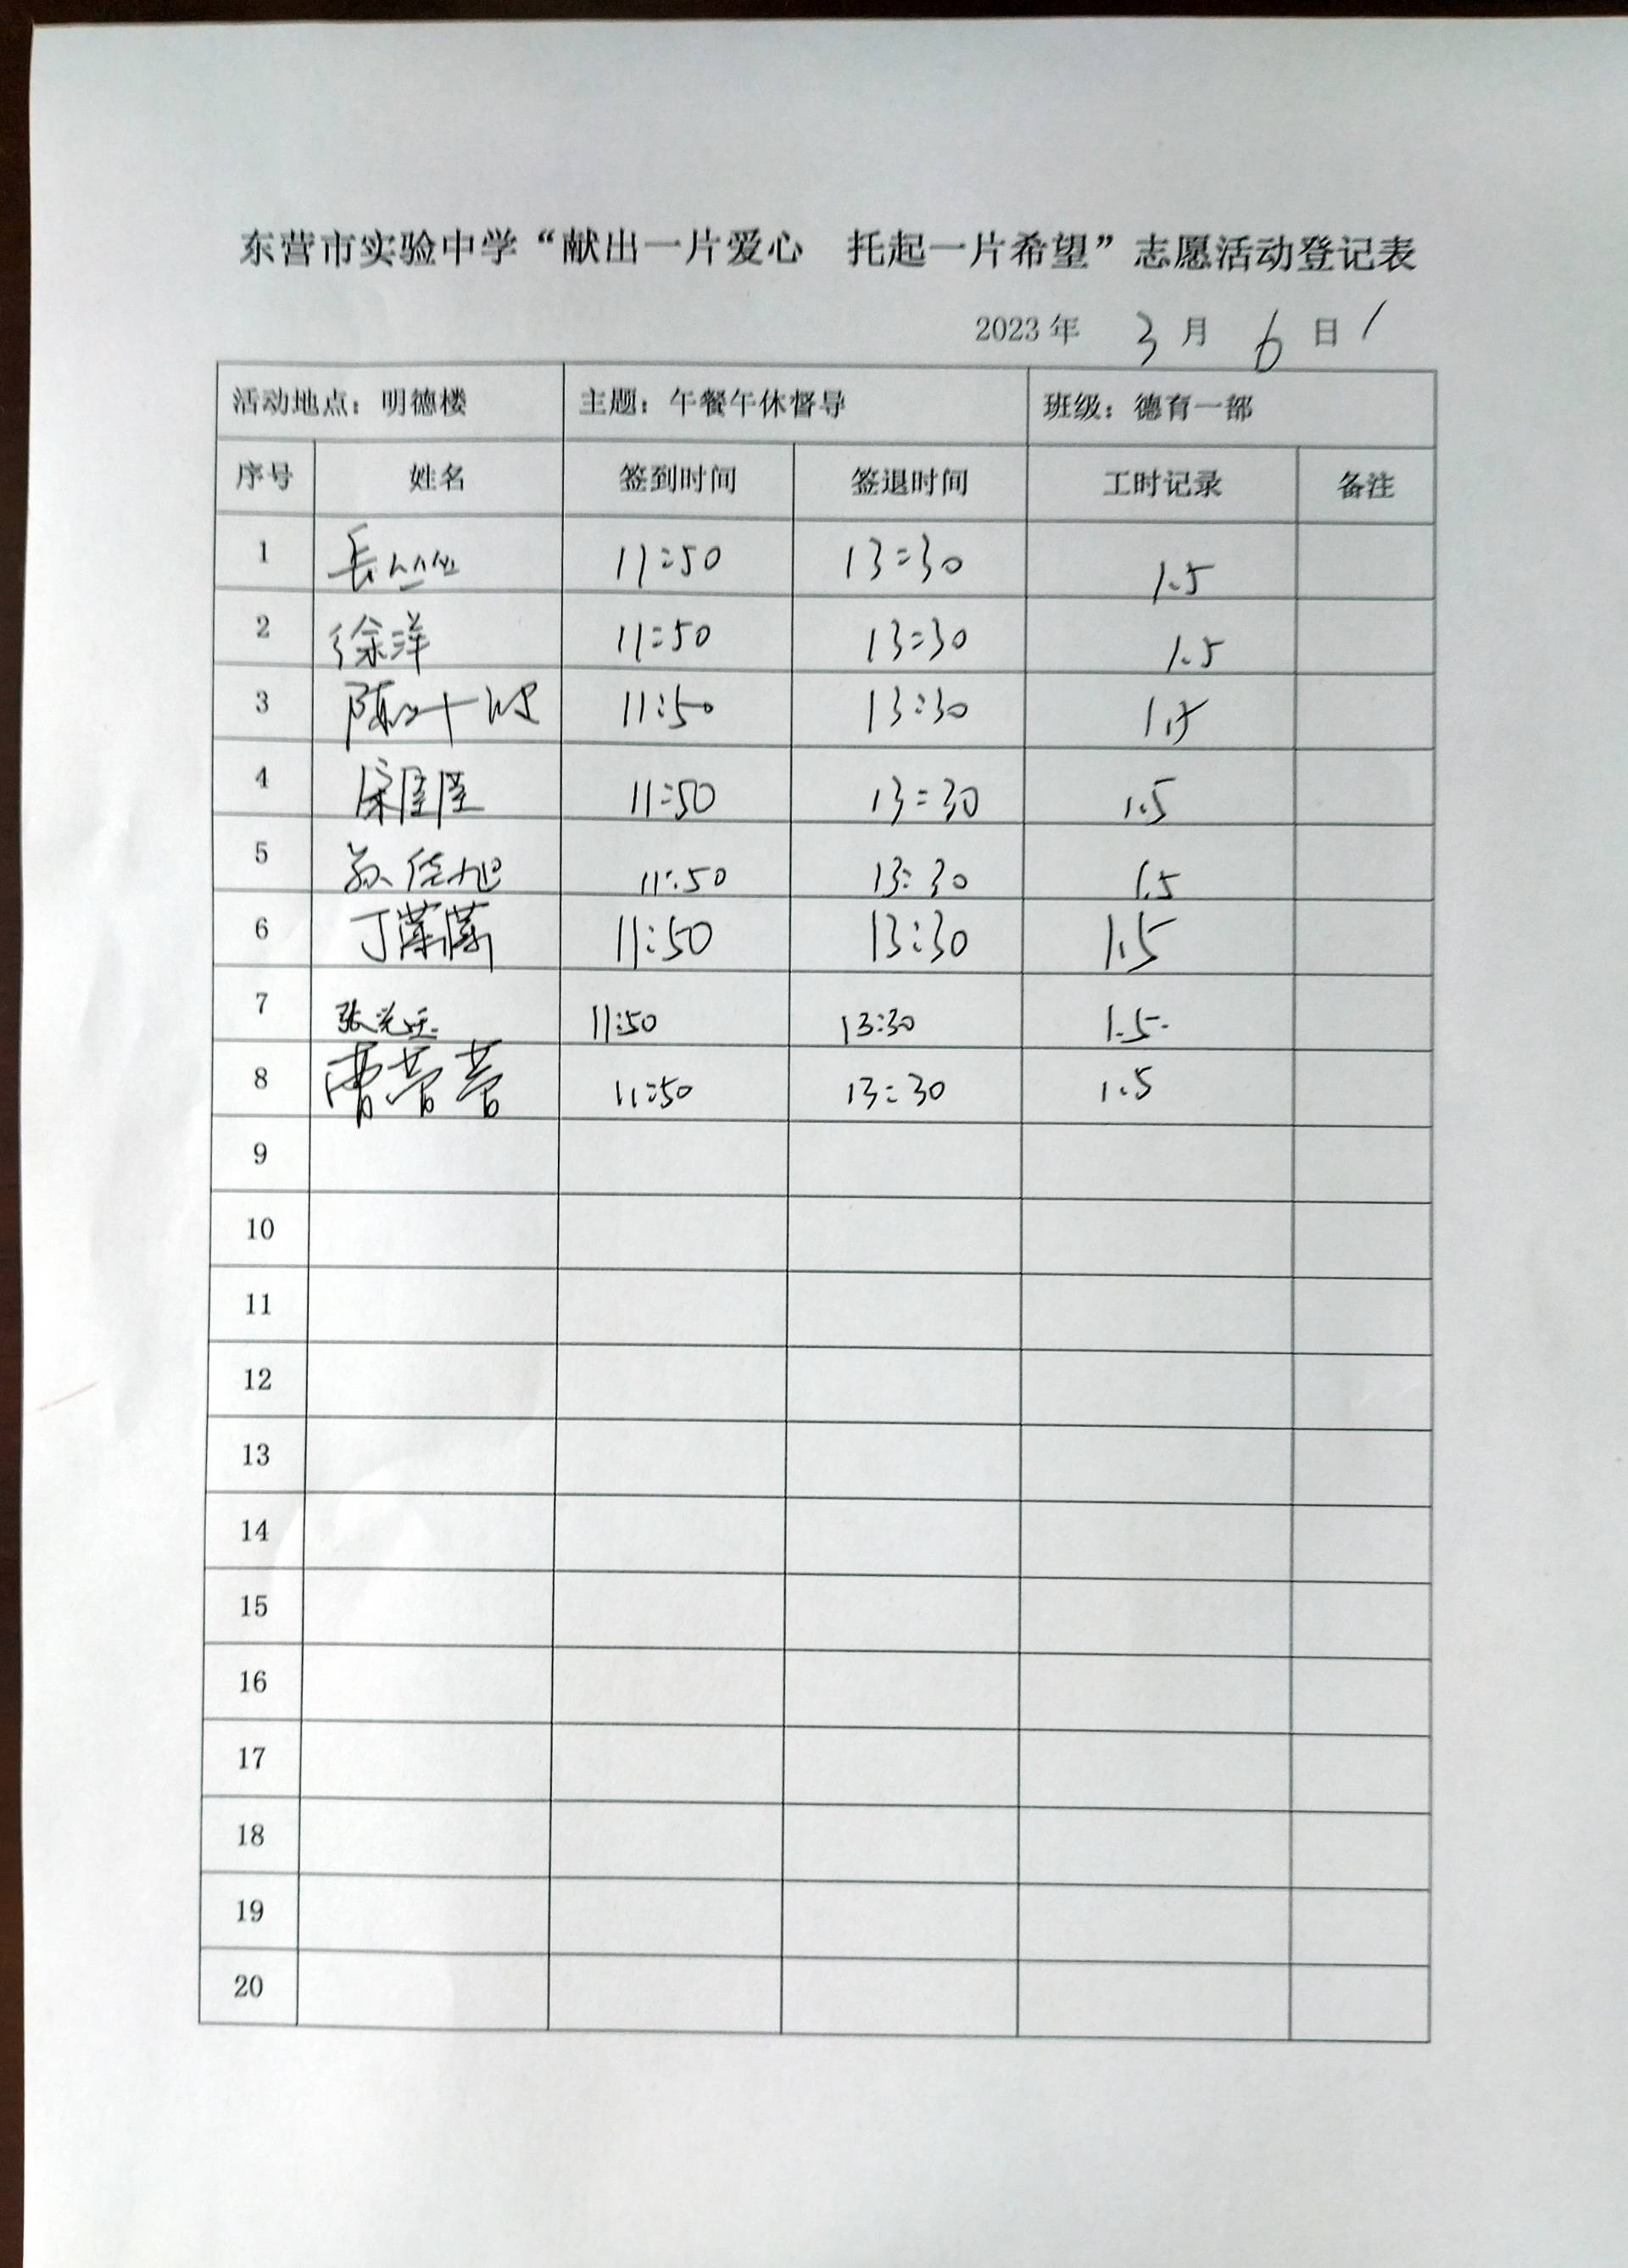 东营市实验中学“献出一片爱心 托起一片希望”志愿活动登记表
2023年 3月 6日
活动地点：明德楼 主题：午餐午休督导 班级：德育一部
序号 姓名 签到时间 签退时间 工时记录 备注
1 11:50 13:30 1.5
2 徐洋 11:50 13:30 1.5
3 陈 11:50 13:30 1.5
4 11:50 13:30 1.5
5 11:50 13:30 1.5
6 丁 11:50 13:30 1.5
7 张 11:50 13:30 1.5
8 曹 11:50 13:30 1.5
9
10
11
12
13
14
15
16
17
18
19
20